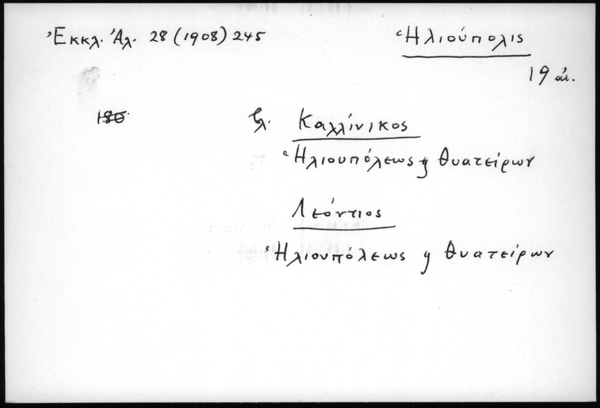 Ἐκκλ. Ἀλ. 28 (1908) 245
Ἡλιούπολις
19 αἰ.
180
βλ. Καλλίνικος
Ἡλιουπόλεως ἢ Θυατείρων
Λεόντιος
Ἡλιουπόλεως ἢ Θυατείρων